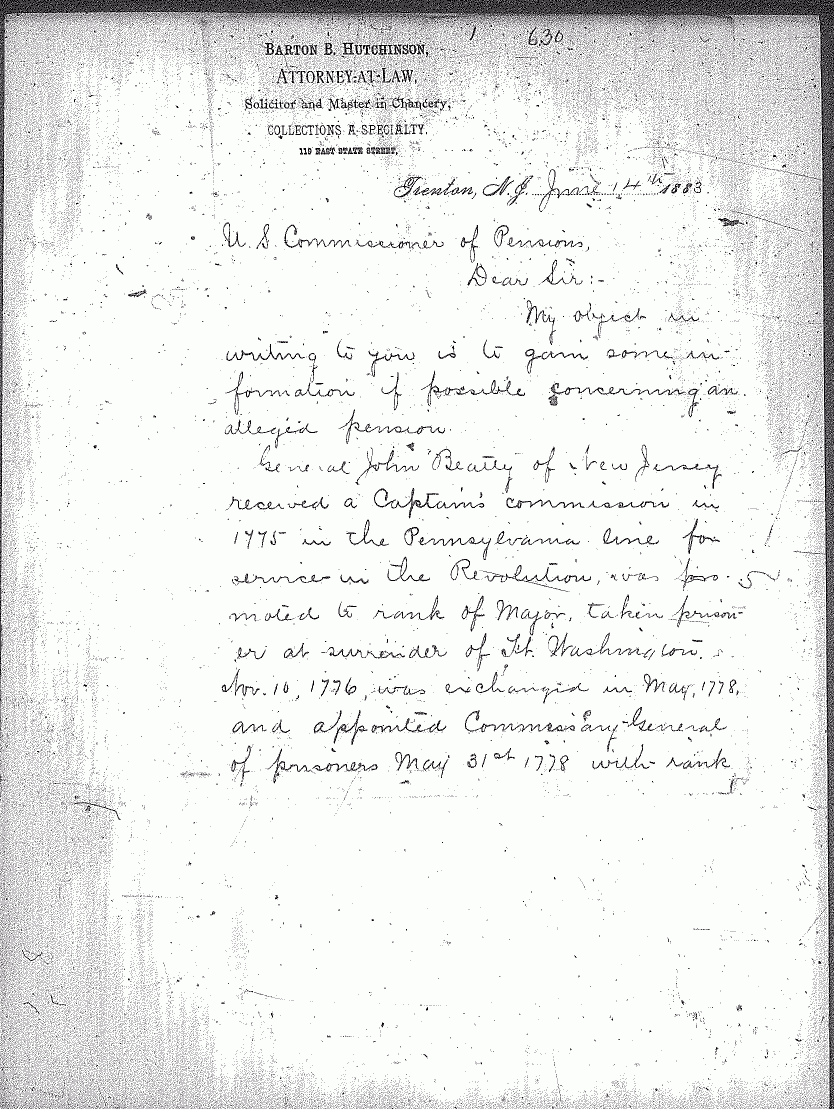 1 630
BARTON B. HUTCHINSON,
ATTORNEY-AT-LAW,
Solicitor and Master in Chancery,
COLLECTIONS A SPECIALTY.
119 EAST STATE STREET,
Trenton, N.J. June 14th 1883
U. S. Commissioner of Pensions,
Dear Sir:-
My object in
writing to you is to gain some in-
formation if possible concerning an
alleged pension.
General John Beatty of New Jersey
received a Captain's commission in
1775 in the Pennsylvania line for
service in the Revolution, was pro-
moted to rank of Major, taken prison-
er at surrender of Ft. Washington
Nov. 10, 1776, was exchanged in May, 1778,
and appointed Commissary-General
of prisoners May 31st 1778 with rank